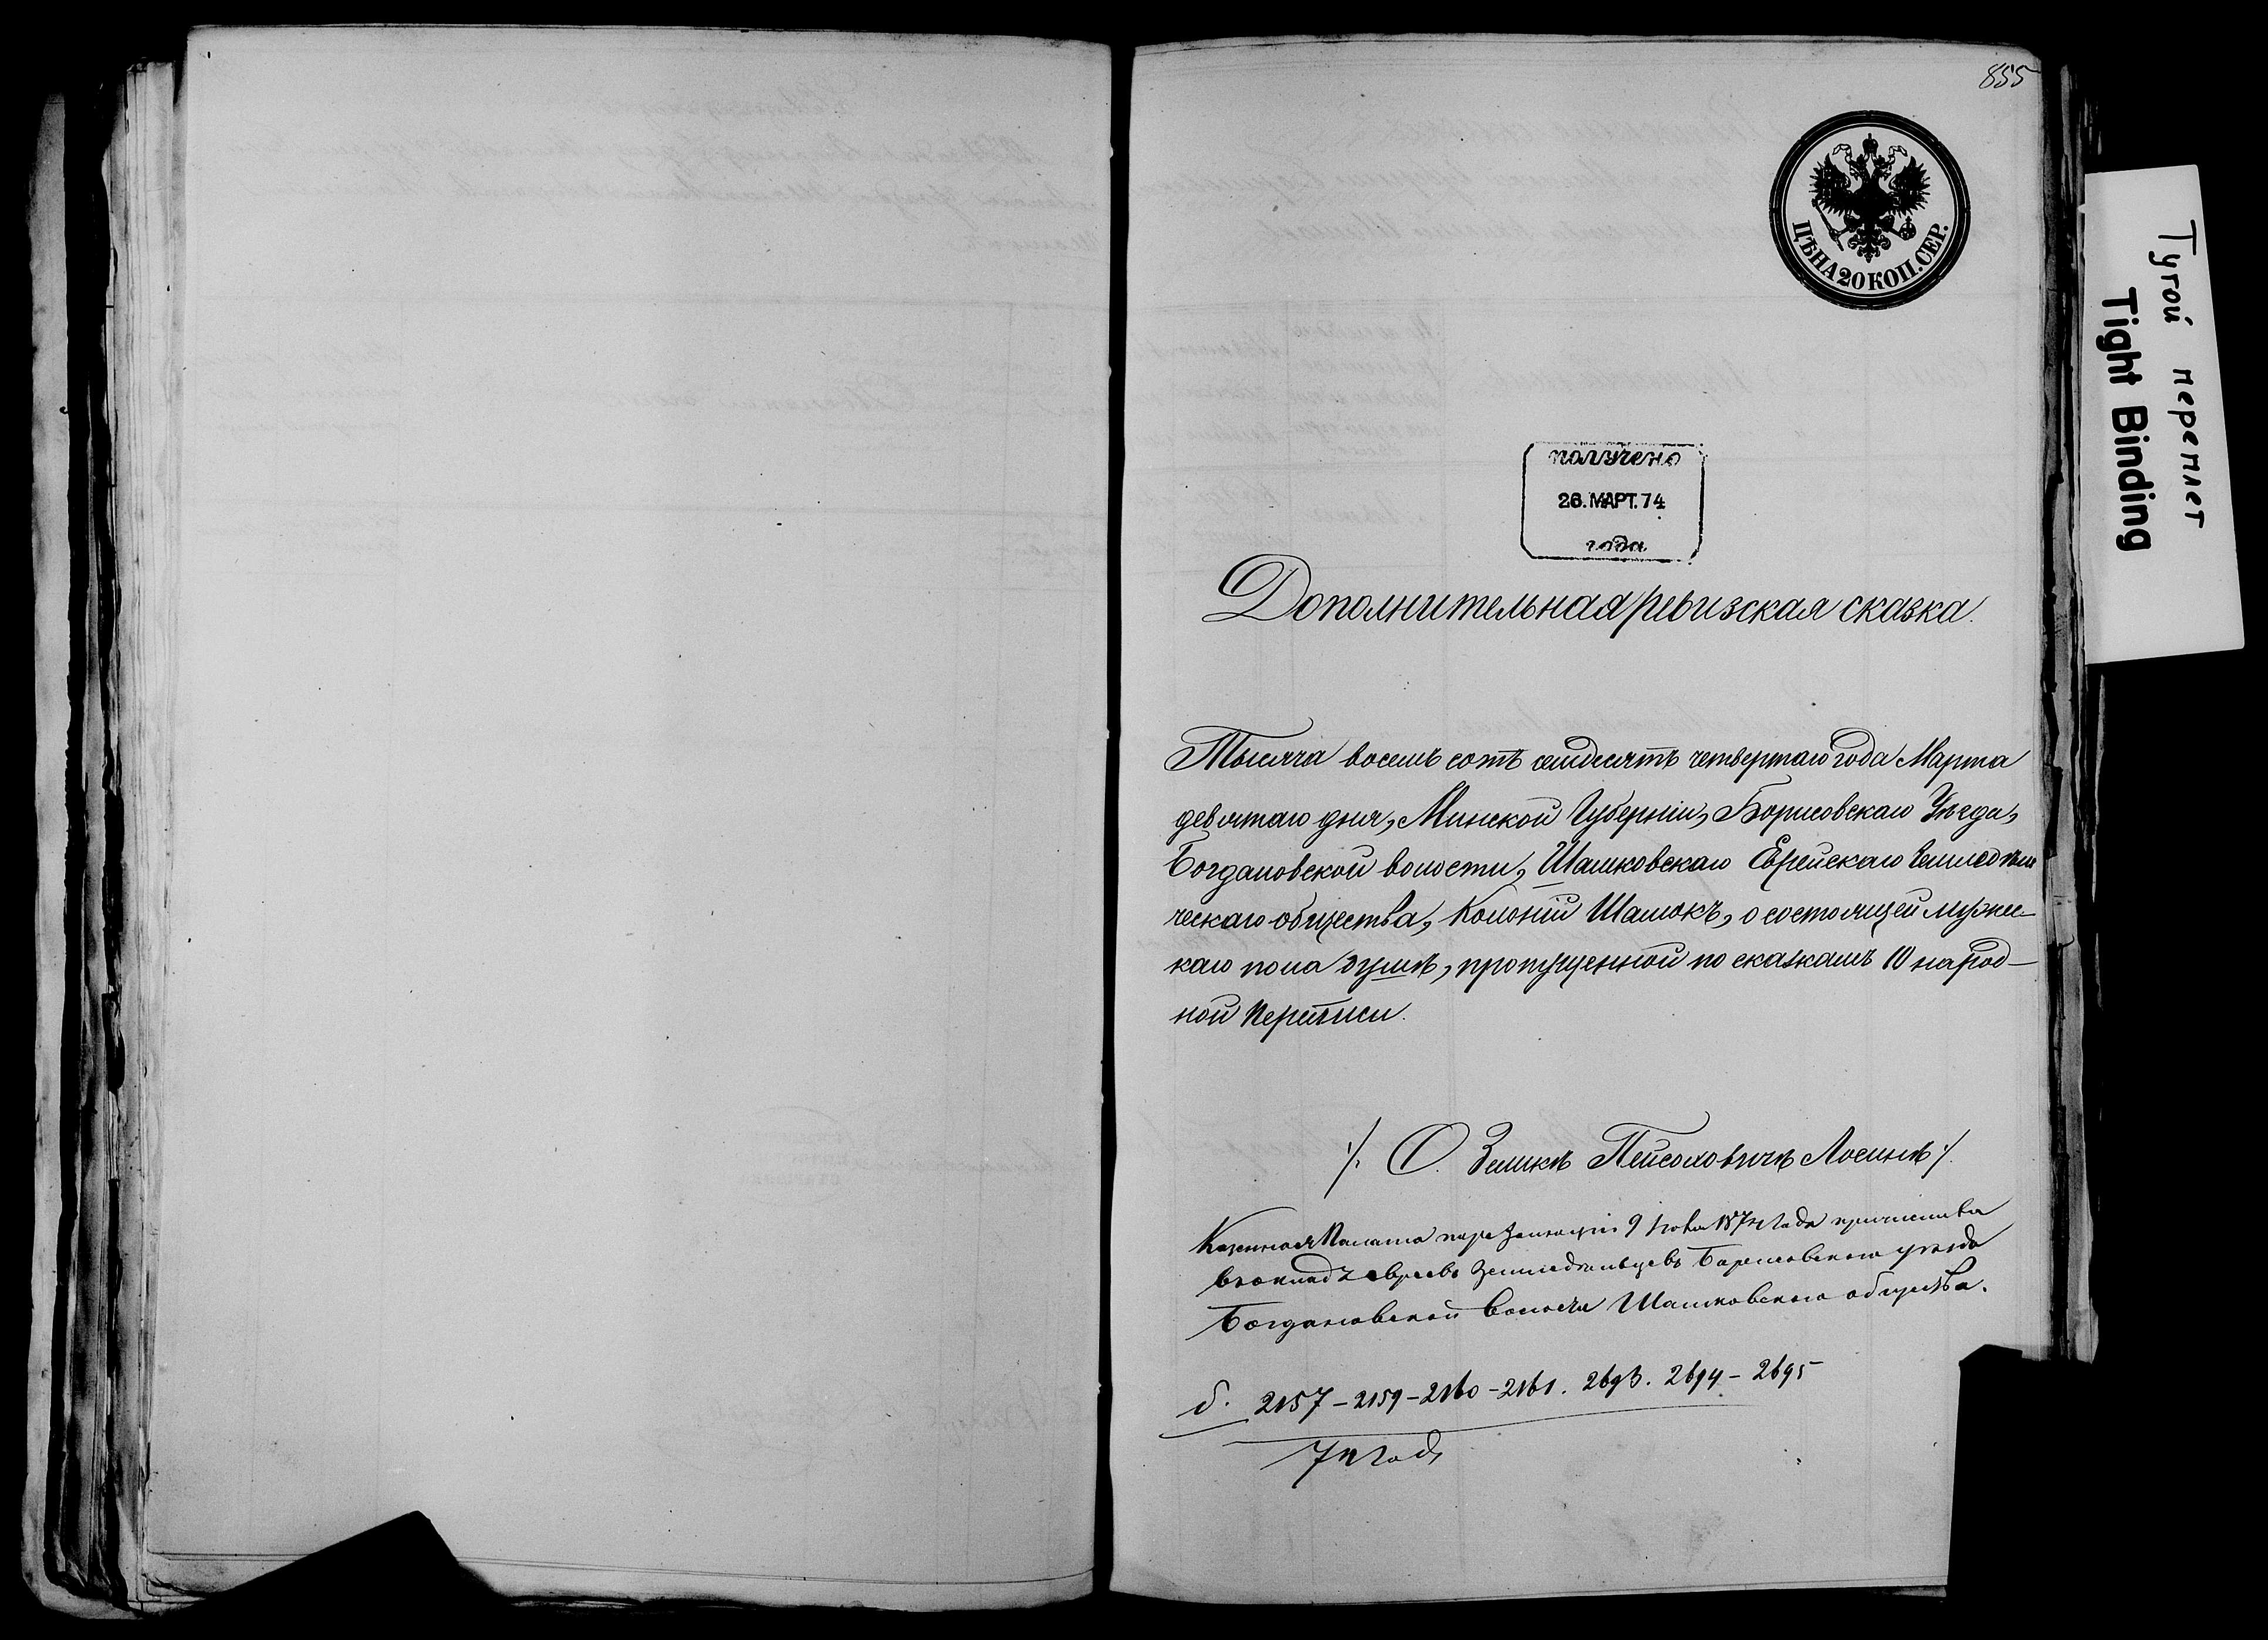 855
ЦѢНА 20 КОП. СЕР.
Тугой переплет
Tight Binding
получено
26. МАРТ. 74
года
Дополнительная ревизская сказка.
Тысяча восемь сотъ семдесятъ четвертаго года Марта
девятаго дня, Минской Губерніи, Борисовскаго Уѣзда,
Богдановской волости, Шашковскаго Еврейскаго Земледѣль
ческаго общества, Колоніи Шашокъ, о состоящей мужес-
каго пола душѣ, пропущенной по сказкамъ 10 народ-
ной переписи.
/. О. Зеликѣ Пейсоховичѣ Лосинѣ ./
Казенная Палата по резолюціи 9 1874 года причислила
въ окладъ евреевъ земледѣльцевъ Борисовскаго уѣзда
Богдановской волости Шашковскаго общества.
б. 2157 - 2159 - 2160 - 2161. 2693. 2694 - 2695